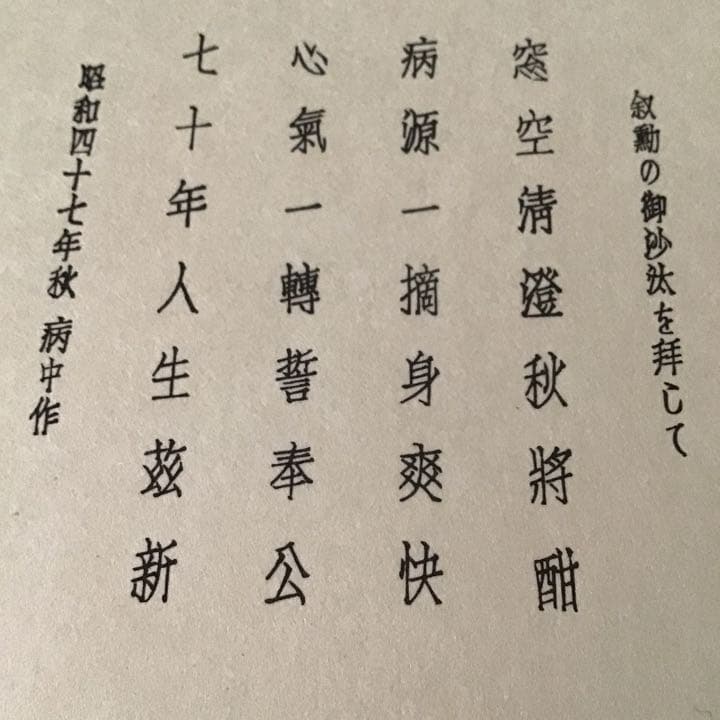 叙勳の御沙汰を拝して
窓空清澄秋將酣
病源一摘身爽快
心氣一轉誓奉公
七十年人生茲新
昭和四十七年秋 病中作